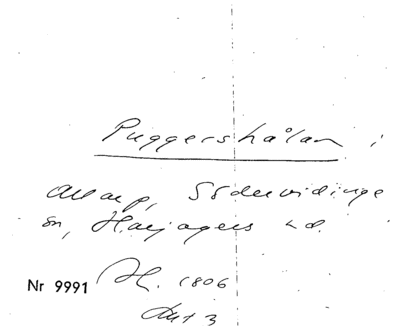 Puggershålan i
Allarp, Södervidinge
sn, Harjagers hd.
Nr 9991 Sk. 1806
Akt 3